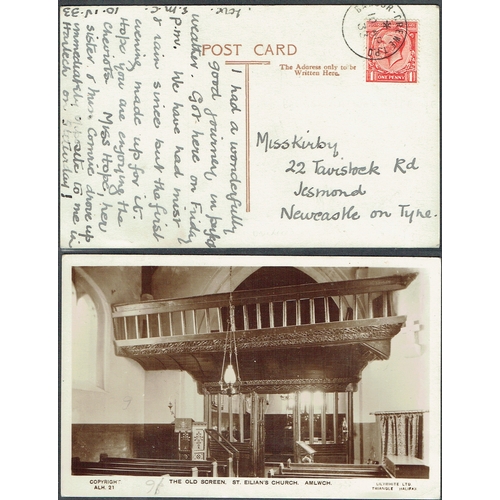 POST CARD
The Address only to be
Written Here.
ONE PENNY
Miss Kirby
22 Tavistock Rd
Jesmond
Newcastle on Tyne.
10. 33
I had a wonderfully
good journey in
weather. Got here on Friday
p.m. We have had mist
& rain since but the first
evening made up for it.
Hope you are enjoying the
Cheviots. Miss Hope, her
sister & Miss Comrie drove up
immediately to me in
on Saturday!
COPYRIGHT
ALH. 21
THE OLD SCREEN, ST. EILIAN'S CHURCH, AMLWCH.
LILYWHITE LTD.
TRIANGLE HALIFAX